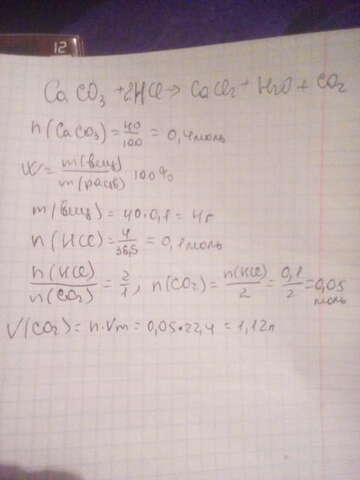 12
CaCO3 + 2HCl → CaCl2 + H2O + CO2
n(CaCO3) = 40/100 = 0,4 моль
W = m(вещ)/m(раств) 100%
m(вещ) = 40·0,1 = 4г
n(HCl) = 4/36,5 = 0,1 моль
n(HCl)/n(CO2) = 2/1, n(CO2) = n(HCl)/2 = 0,1/2 = 0,05 моль
V(CO2) = n·Vm = 0,05·22,4 = 1,12л